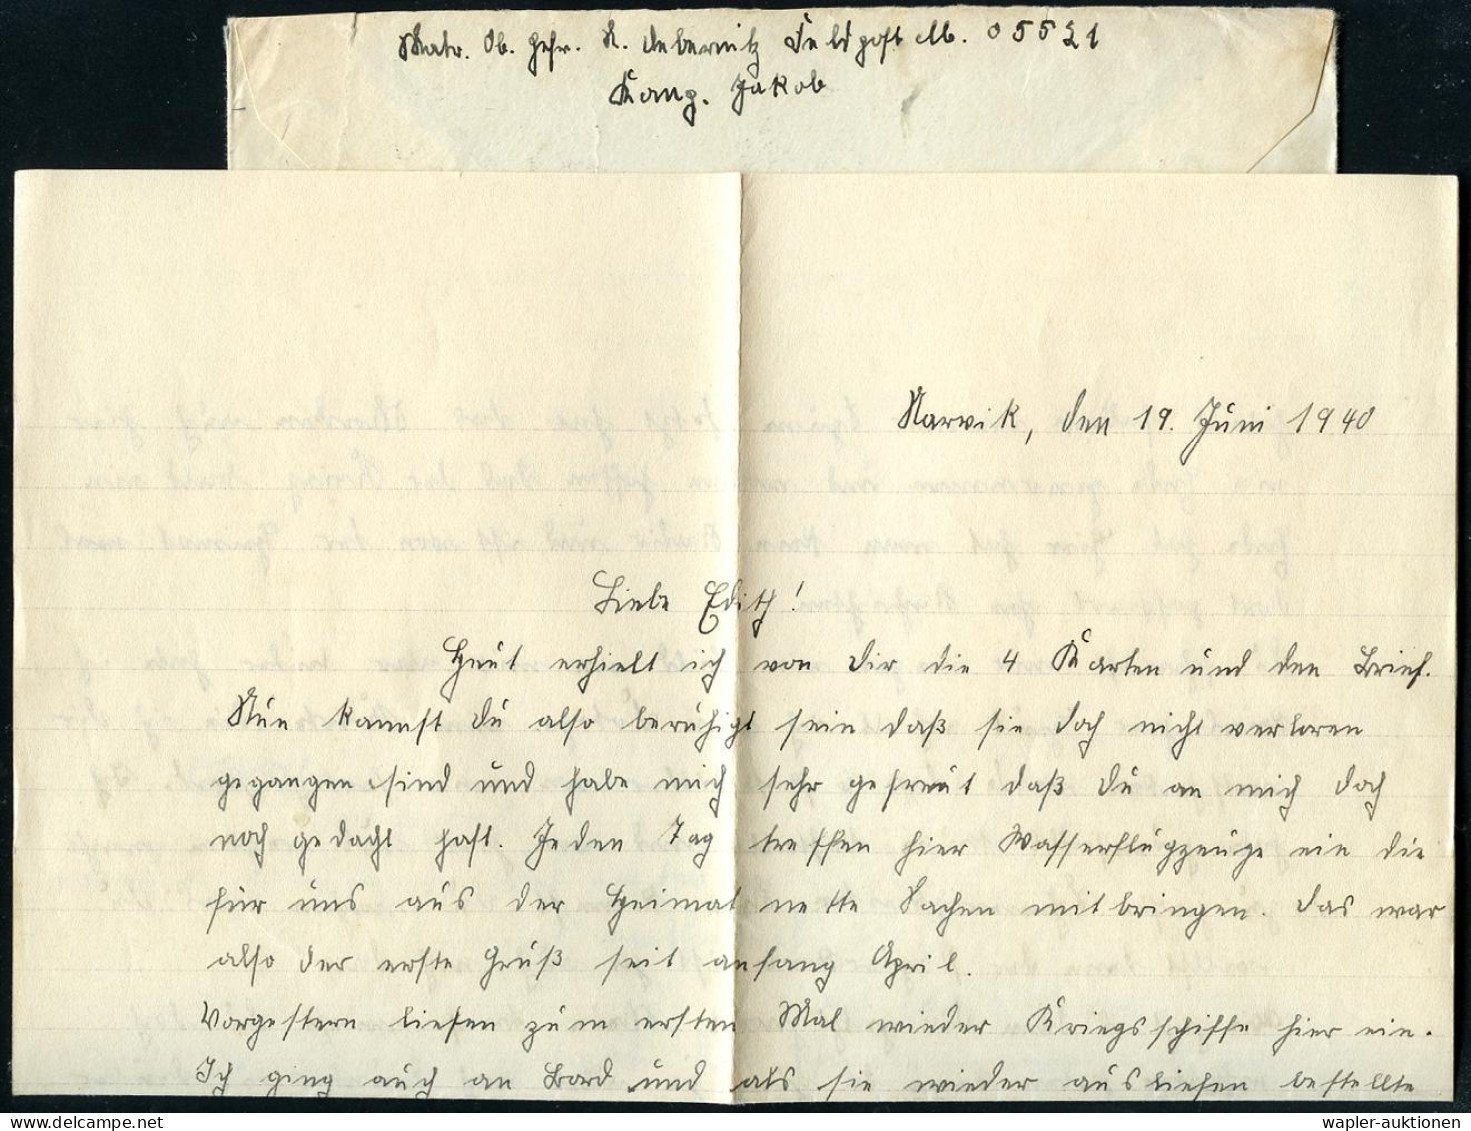 Matr. Ob. Gefr. R. Debernitz Feldpost No. 05521
Komp. Jakob
Narvik, den 19. Juni 1940
Liebe Edith!
Heut erhielt ich von Dir die 4 Karten und den Brief.
Nun kannst Du also beruhigt sein daß sie doch nicht verloren
gegangen sind und habe mich sehr gefreut daß Du an mich doch
noch gedacht hast. Jeden Tag treffen hier Wasserflugzeuge ein die
für uns aus der Heimat nette Sachen mitbringen. Das war
also der erste Gruß seit anfang April.
Vorgestern liefen zum ersten Mal wieder Kriegsschiffe hier ein.
Ich ging auch an Bord und als sie wieder ausliefen bestellte
wapler-auktionen